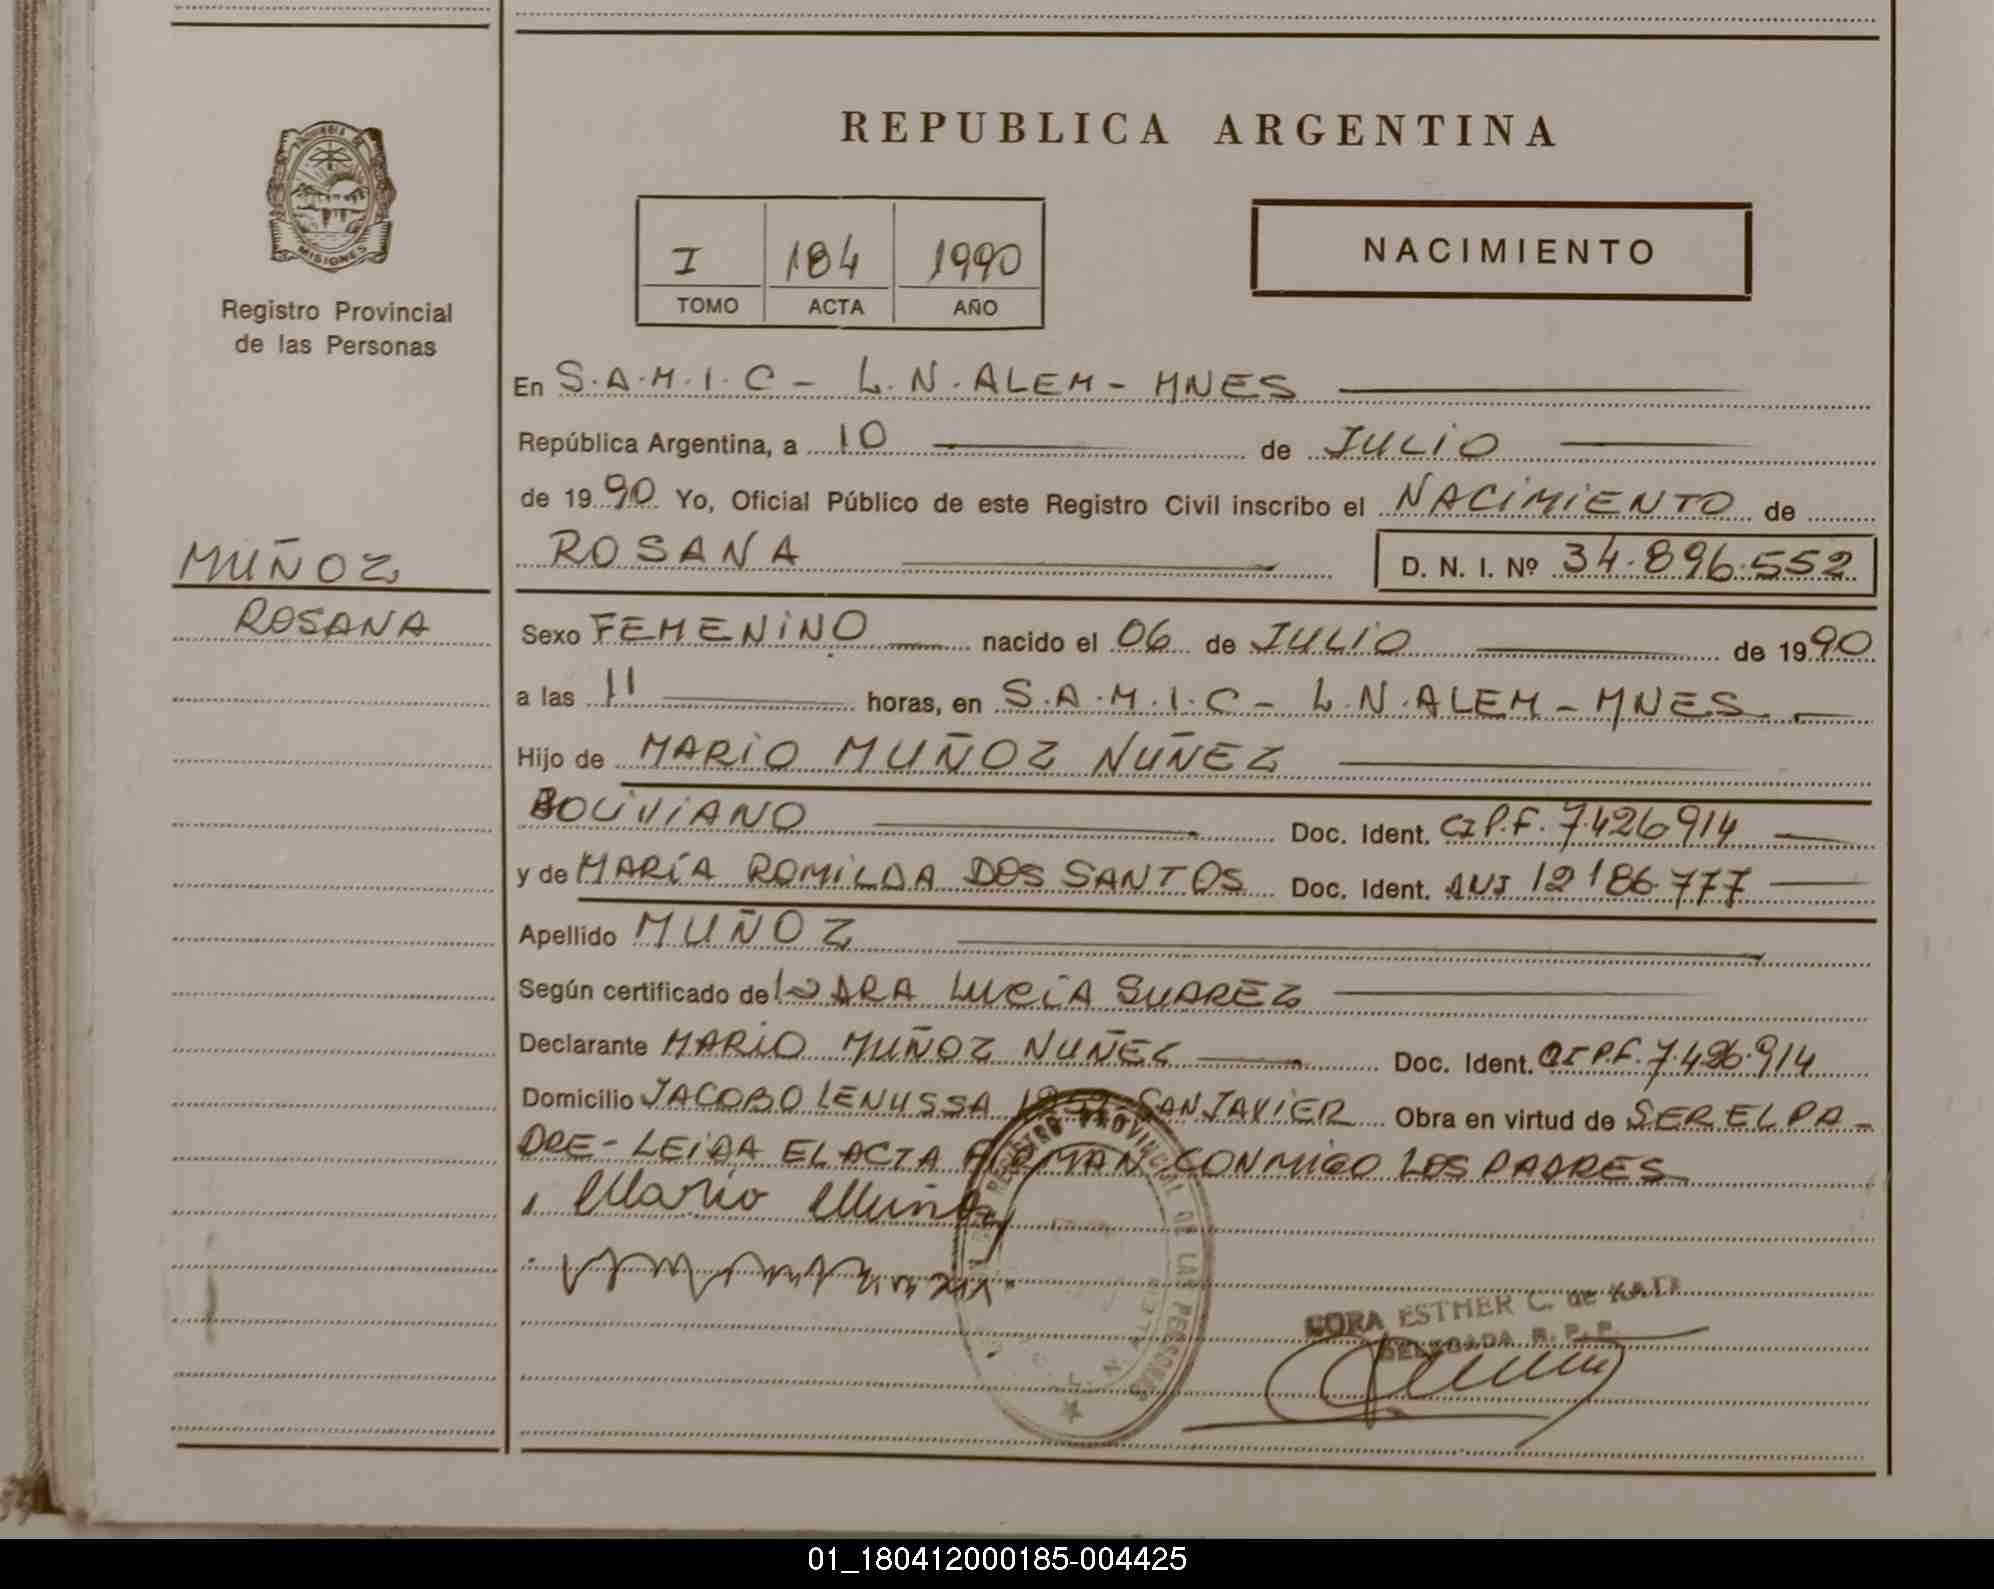 REPUBLICA ARGENTINA
PROVINCIA DE MISIONES
Registro Provincial
de las Personas
I 184 1990
TOMO ACTA AÑO
NACIMIENTO
En S.A.M.I.C - L.N.ALEM - MNES
República Argentina, a 10 de JULIO
de 1990 Yo, Oficial Público de este Registro Civil inscribo el NACIMIENTO de
MUÑOZ
ROSANA
ROSANA D. N. I. Nº 34.896.552
Sexo FEMENINO nacido el 06 de JULIO de 1990
a las 11 horas, en S.A.M.I.C - L.N.ALEM - MNES
Hijo de MARIO MUÑOZ NUÑEZ
BOLIVIANO Doc. Ident. CI P.F. 7.426914
y de MARÍA ROMILDA DOS SANTOS Doc. Ident. DNI 12186.777
Apellido MUÑOZ
Según certificado de DARA LUCÍA SUAREZ
Declarante MARIO MUÑOZ NUÑEZ Doc. Ident. CI P.F. 7.426.914
Domicilio JACOBO LENUSSA SAN JAVIER Obra en virtud de SER EL PA-
DRE - LEIDA EL ACTA FIRMAN CONMIGO LOS PADRES
Mario Muñoz
REGISTRO PROVINCIAL DE LAS PERSONAS
ESTHER C. de
DELEGADA R.P.P.
01_180412000185-004425